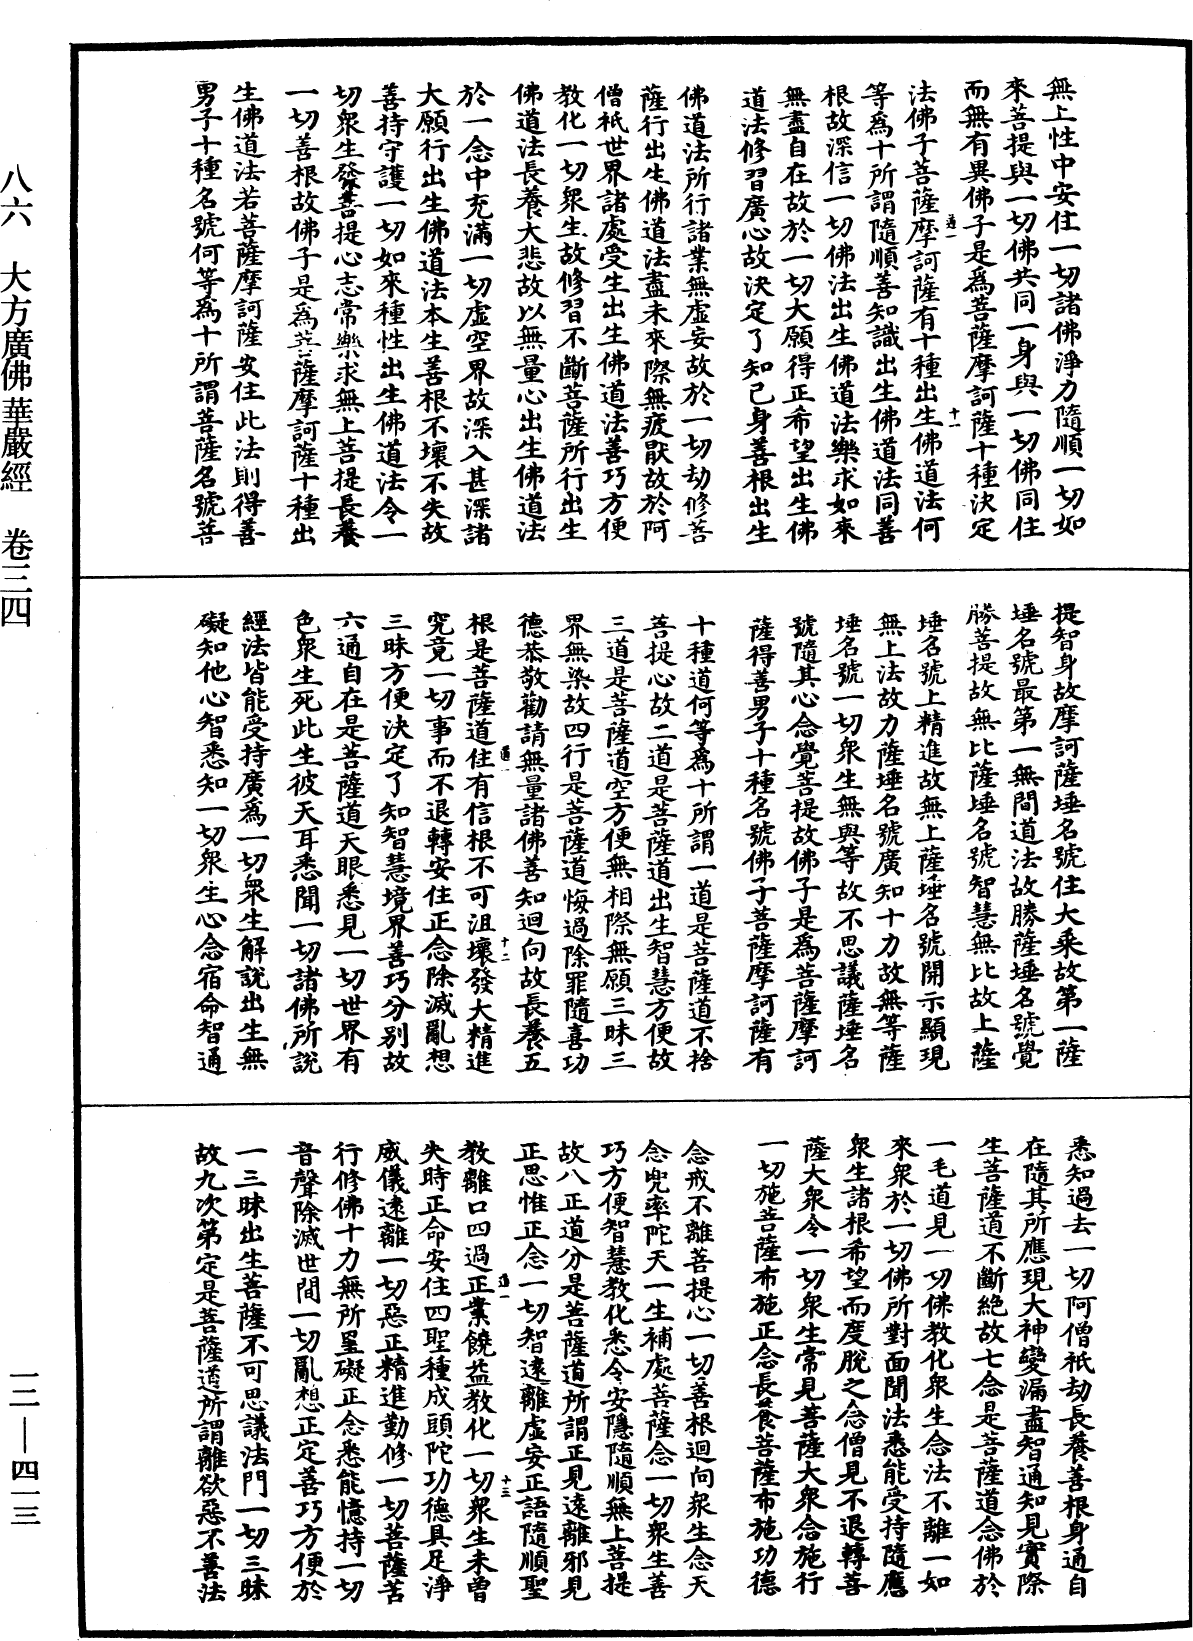 無上性中安住一切諸佛淨力隨順一切如
來菩提與一切佛共同一身與一切佛同住
而無有異佛子是爲菩薩摩訶薩十種決定
法佛子菩薩摩訶薩有十種出生佛道法何
等爲十所謂隨順善知識出生佛道法同善
根故深信一切佛法出生佛道法樂求如來
無盡自在故於一切大願得正希望出生佛
道法修習廣心故決定了知己身善根出生
佛道法所行諸業無虛妄故於一切劫修菩
薩行出生佛道法盡未來際無疲厭故於阿
僧祇世界諸處受生出生佛道法善巧方便
教化一切衆生故修習不斷菩薩所行出生
佛道法長養大悲故以無量心出生佛道法
於一念中充滿一切虛空界故深入甚深諸
大願行出生佛道法本生善根不壞不失故
善持守護一切如來種性出生佛道法令一
切衆生發菩提心志常樂求無上菩提長養
一切善根故佛子是爲菩薩摩訶薩十種出
生佛道法若菩薩摩訶薩安住此法則得善
男子十種名號何等爲十所謂菩薩名號菩
提智身故摩訶薩埵名號住大乘故第一薩
埵名號最第一無間道法故勝薩埵名號覺
勝菩提故無比薩埵名號智慧無比故上薩
埵名號上精進故無上薩埵名號開示顯現
無上法故力薩埵名號廣知十力故無等薩
埵名號一切衆生無與等故不思議薩埵名
號隨其心念覺菩提故佛子是爲菩薩摩訶
薩得善男子十種名號佛子菩薩摩訶薩有
十種道何等爲十所謂一道是菩薩道不捨
菩提心故二道是菩薩道出生智慧方便故
三道是菩薩道空方便無相際無願三昧三
界無染故四行是菩薩道悔過除罪隨喜功
德恭敬勸請無量諸佛善知迴向故長養五
根是菩薩道住有信根不可沮壞發大精進
究竟一切事而不退轉安住正念除滅亂想
三昧方便決定了知智慧境界善巧分別故
六通自在是菩薩道天眼悉見一切世界有
色衆生死此生彼天耳悉聞一切諸佛所說
經法皆能受持廣爲一切衆生解說出生無
礙知他心智悉知一切衆生心念宿命智通
悉知過去一切阿僧祇劫長養善根身通自
在隨其所應現大神變漏盡智通知見實際
生菩薩道不斷絶故七念是菩薩道念佛於
一毛道見一切佛教化衆生念法不離一如
來衆於一切佛所對面聞法悉能受持隨應
衆生諸根希望而度脫之念僧見不退轉菩
薩大衆令一切衆生常見菩薩大衆念施行
一切施菩薩布施正念長養菩薩布施功德
念戒不離菩提心一切善根迴向衆生念天
念兜率陀天一生補處菩薩念一切衆生善
巧方便智慧教化悉令安隱隨順無上菩提
故八正道分是菩薩道所謂正見遠離邪見
正思惟正念一切智遠離虛妄正語隨順聖
教離口四過正業饒益教化一切衆生未曾
失時正命安住四聖種成頭陀功德具足淨
威儀遠離一切惡正精進勤修一切菩薩苦
行修佛十力無所罣礙正念悉能憶持一切
音聲除滅世間一切亂想正定善巧方便於
一三昧出生菩薩不可思議法門一切三昧
故九次第定是菩薩道所謂離欲惡不善法
八六　大方廣佛華嚴經　卷三四
一二—四一三